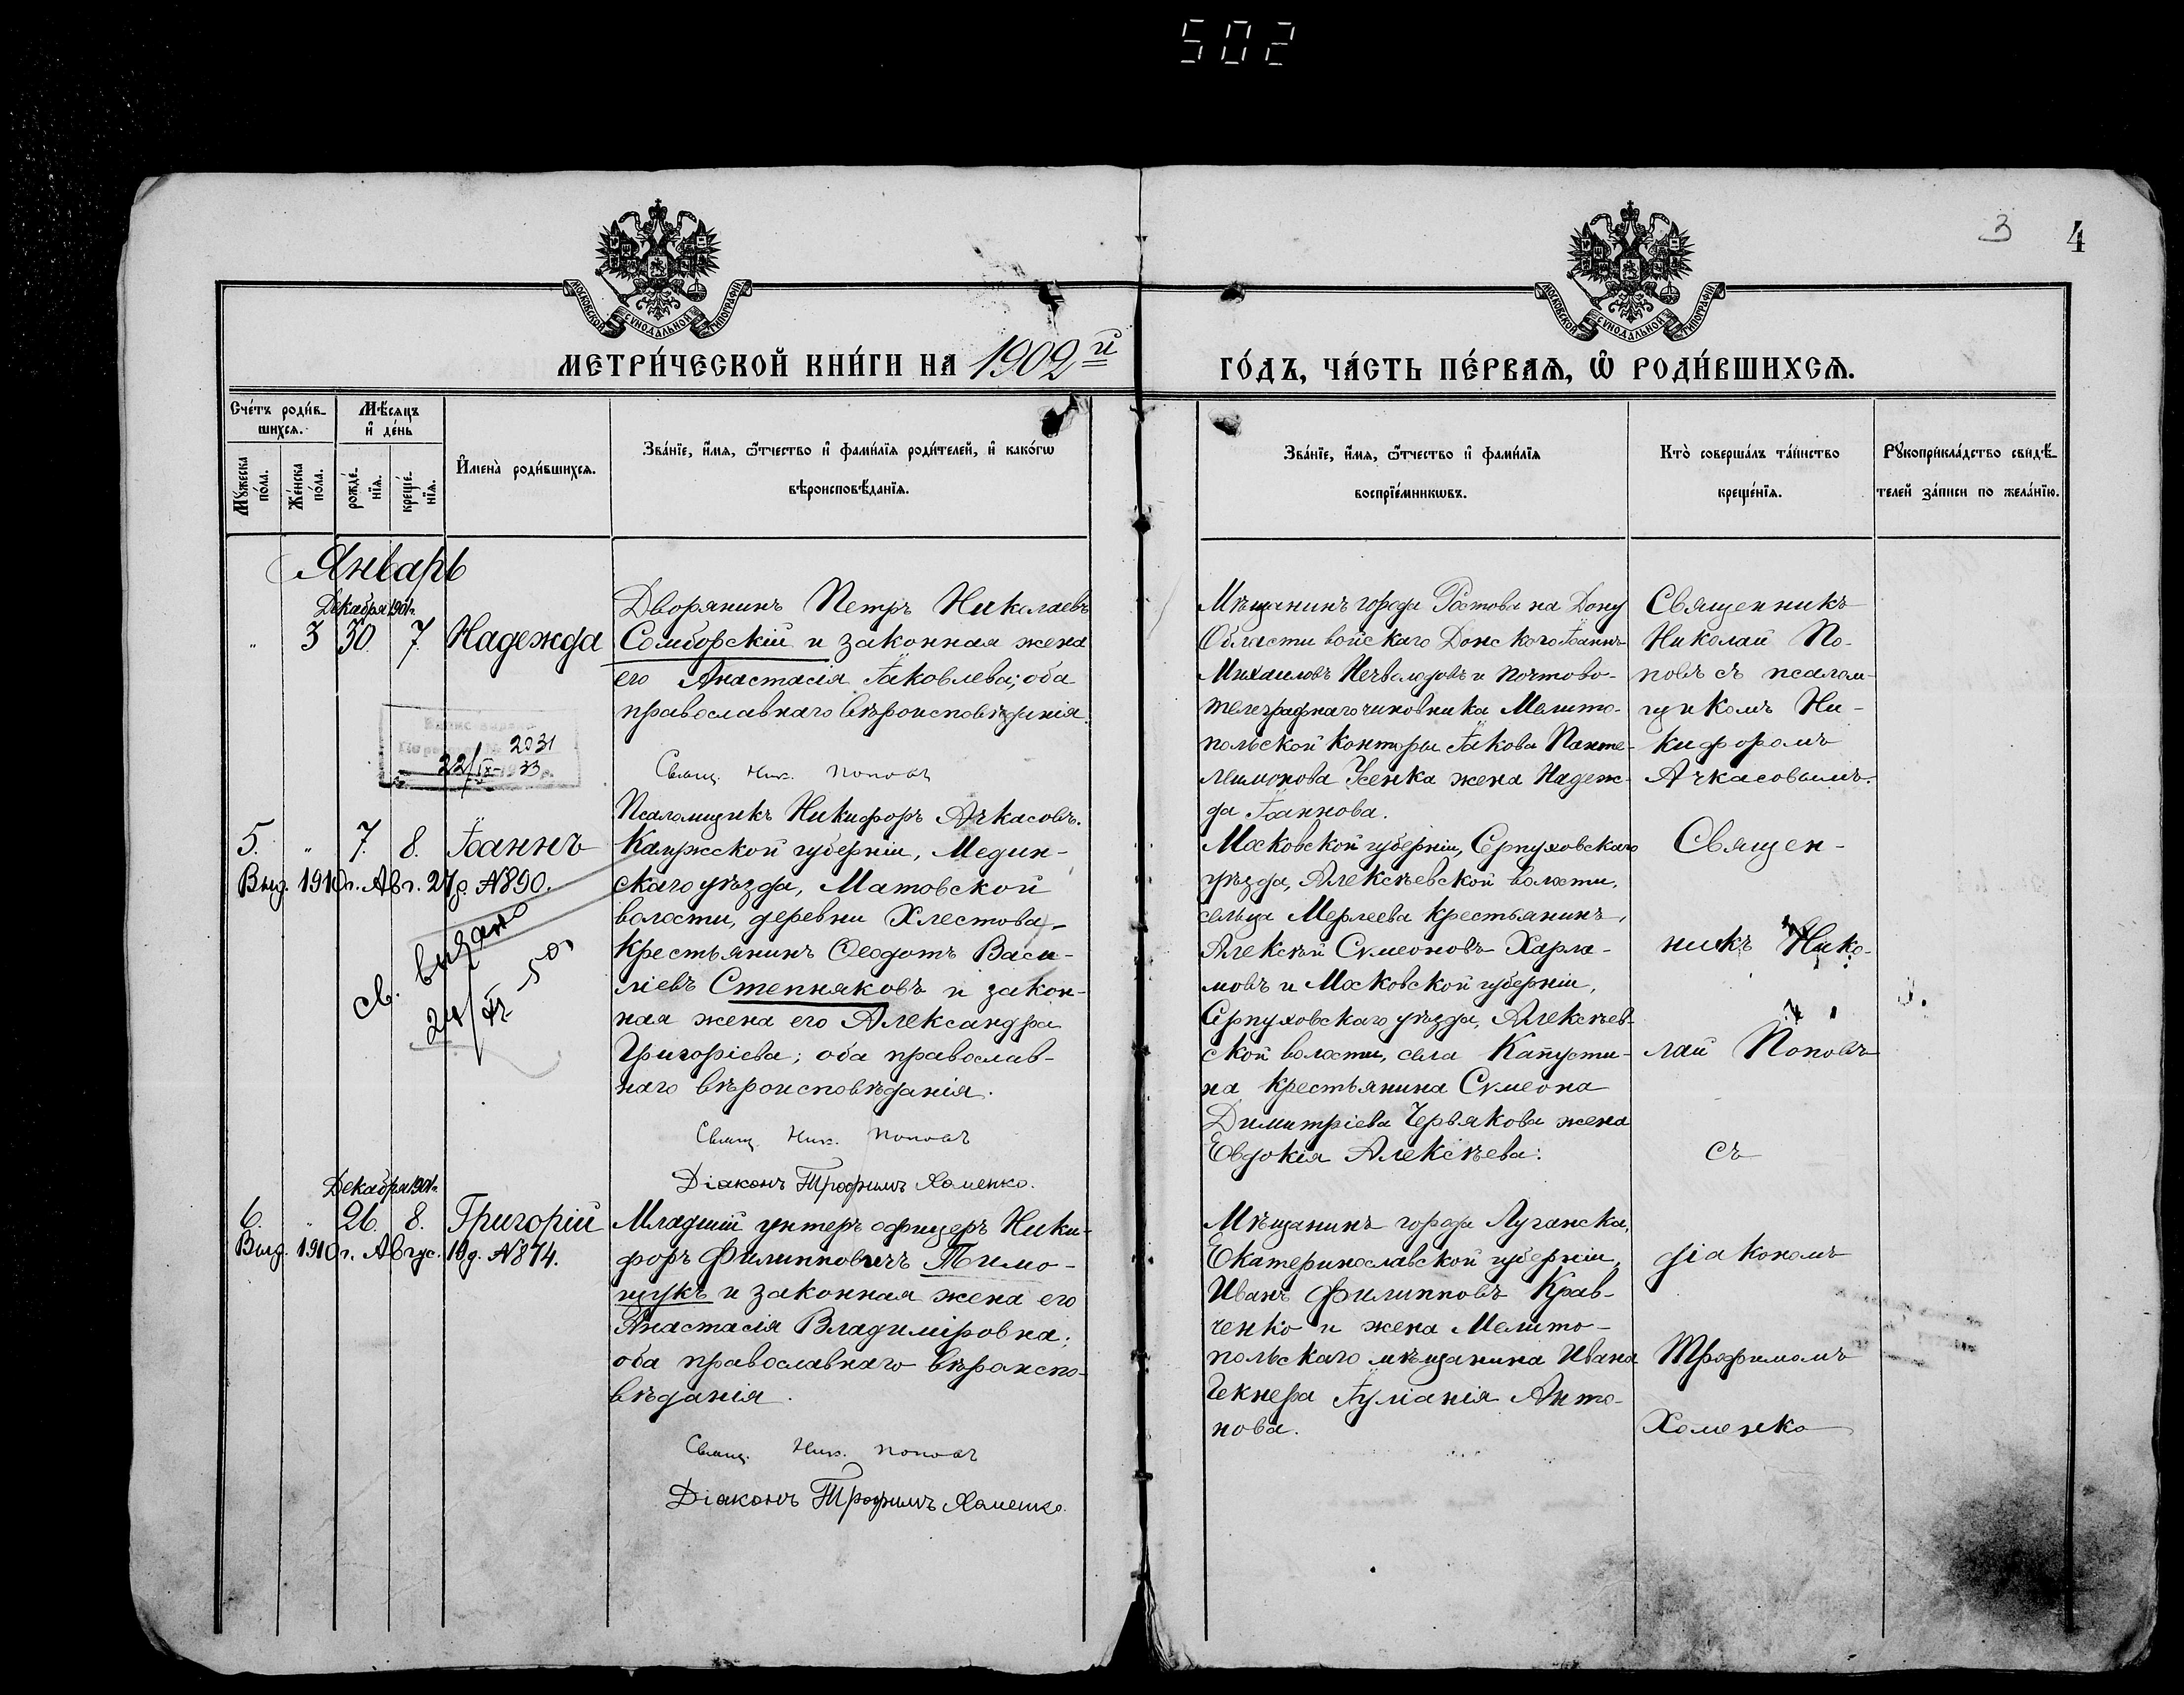 502
3
4
МОСКОВСКОЙ СѴНОДАЛЬНОЙ ТИПОГРАФІИ
МОСКОВСКОЙ СѴНОДАЛЬНОЙ ТИПОГРАФІИ
МЕТРИ́ЧЕСКОЙ КНИ́ГИ НА 1902й
ГО́ДЪ, ЧА́СТЬ ПЕ́РВАѦ, Ѡ҆ РОДИ́ВШИХСѦ.
Сче́тъ роди́в-
шихсѧ.
Мѣ́сѧцъ
и҆ де́нь
Мꙋ́жеска
по́ла.
Же́нска
по́ла.
рожде́-
нїѧ.
креще́-
нїѧ.
И҆мена̀ роди́вшихсѧ.
Зва́нїе, и҆́мѧ, ѻ҆́тчество и҆ фами́лїѧ роди́телей, и҆ како́гѡ
вѣроисповѣ́данїѧ.
Зва́нїе, и҆́мѧ, ѻ҆́тчество и҆ фами́лїѧ
воспрїе́мникѡвъ.
Кто̀ соверша́лъ та́инство
креще́нїѧ.
Рꙋкоприкла́дство свидѣ́-
телей за́писи по жела́нїю.
Январь
Декабря 1901г.
" 3 30. 7. Надежда
Дворянинъ Петръ Николаевъ
Самборскій и законная жена
его Анастасія Іаковлева; оба
православнаго вѣроисповѣданія.
2031
22/IX-33
Свящ. Ник. Поповъ
Псаломщикъ Никифоръ Ачкасовъ.
Мѣщанинъ города Ростова на Дону
Области войскаго Донскаго Іоаннъ
Михаиловъ Нечволодовъ и почтово-
телеграфнаго чиновника Мелито-
польской конторы Іакова Панте-
леимонова Усенка жена Надеж-
да Іоаннова.
Священникъ
Николай По-
повъ съ псалом-
щикомъ Ни-
кифоромъ
Ачкасовымъ.
5. " 7. 8. Іоаннъ
Выд. 1910г. Авг. 27д. №890.
св. выдано
24/XI 50
Калужской губерніи, Медын-
скаго уѣзда, Матовской
волости, деревни Хлестова,
крестьянинъ Ѳеодотъ Васи-
ліевъ Степняковъ и закон-
ная жена его Александра
Григоріева; оба православ-
наго вѣроисповѣданія.
Свящ. Ник. Поповъ
Діаконъ Трофимъ Хоменко.
Московской губерніи, Серпуховскаго
уѣзда, Алексѣевской волости,
сельца Мерлеева крестьянинъ,
Алексѣй Сѵмеоновъ Харла-
мовъ и Московской губерніи,
Серпуховскаго уѣзда, Алексѣев-
ской волости, села Капусти-
на крестьянина Сѵмеона
Димитріева Червякова жена
Евдокія Алексѣева.
Священ-
никъ Нико-
лай Поповъ
съ
Декабря 1901г.
6. " 26. 8. Григорій
Выд. 1910г. Авгус. 19д. №874.
Младшій унтеръ офицеръ Ники-
форъ Филипповичъ Тимо-
щукъ и законная жена его
Анастасія Владиміровна;
оба православнаго вѣроиспо-
вѣданія.
Свящ. Ник. Поповъ
Діаконъ Трофимъ Хоменко.
Мѣщанинъ города Луганска,
Екатеринославской губерніи,
Иванъ Филипповъ Крав-
ченко и жена Мелито-
польскаго мѣщанина Ивана
Гекнера Іуліанія Анто-
нова.
діакономъ
Трофимомъ
Хоменко